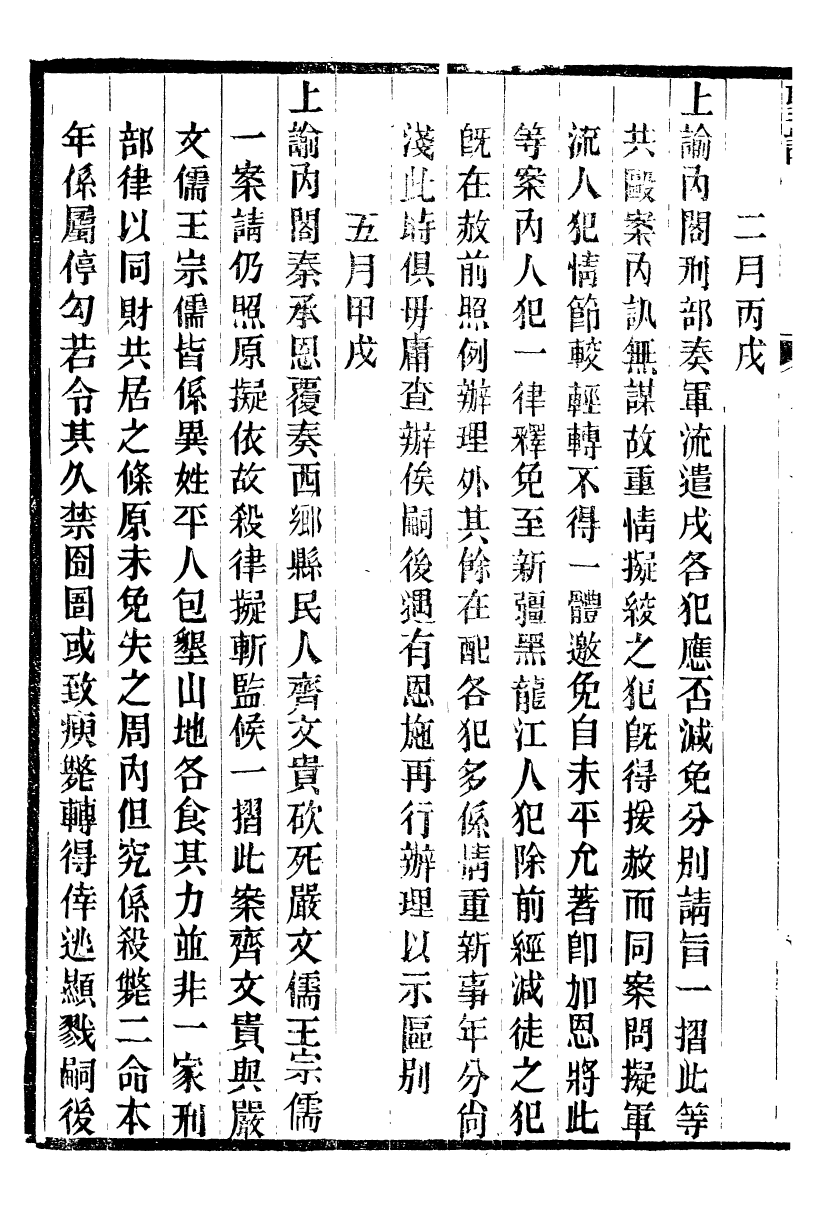 二月丙戌
上諭內閣刑部奏軍流遣戌各犯應否減免分別請旨一摺此等
共毆案內訊無謀故重情擬絞之犯旣得援赦而同案問擬軍
流人犯情節較輕轉不得一體邀免自未平允著卽加恩將此
等案內人犯一律釋免至新疆黑龍江人犯除前經減徒之犯
旣在赦前照例辦理外其餘在配各犯多係情重新事年分尙
淺此時俱毋庸查辦俟嗣後遇有恩施再行辦理以示區别
五月甲戌
上諭內閣秦承恩覆奏西鄉縣民人齊文貴砍死嚴文儒王宗儒
一案請仍照原擬依故殺律擬斬監候一摺此案齊文貴與嚴
文儒王宗儒皆係異姓平人包墾山地各食其力並非一家刑
部律以同財共居之條原未免失之周內但究係殺斃二命本
年係屬停勾若令其久禁囹圄或致瘐斃轉得倖逃顯戮嗣後